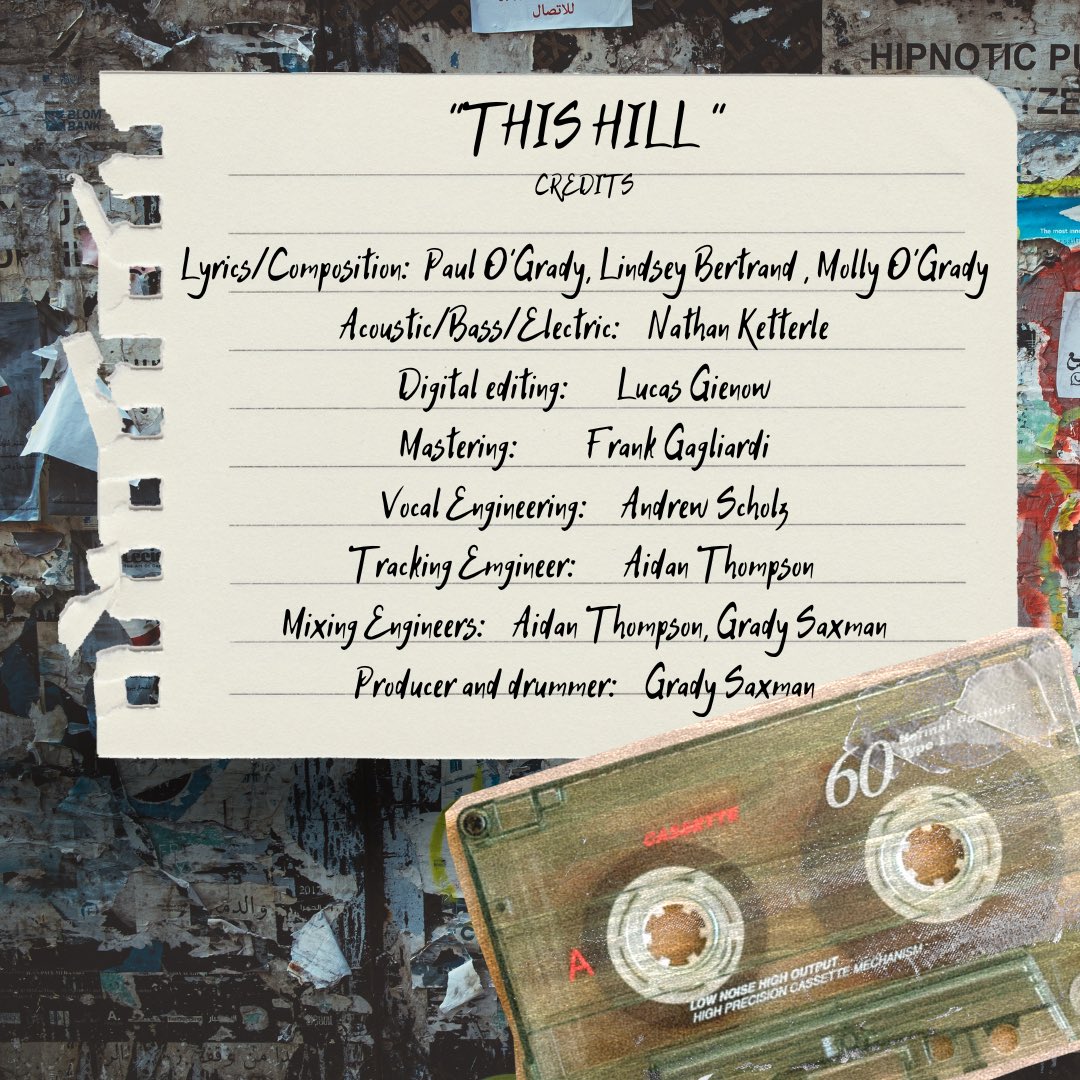 للاتصال
HIPNOTIC PU
YZE
BLOM
BANK
"THIS HILL "
CREDITS
The most inn
Lyrics/Composition: Paul O'Grady, Lindsey Bertrand , Molly O'Grady
Acoustic/Bass/Electric: Nathan Ketterle
Digital editing: Lucas Gienow
Mastering: Frank Gagliardi
Vocal Engineering: Andrew Scholz
Tracking Emgineer: Aidan Thompson
Mixing Engineers: Aidan Thompson, Grady Saxman
Producer and drummer: Grady Saxman
60
Normal Position
Type I
CASSETTE
A
LOW NOISE HIGH OUTPUT
HIGH PRECISION CASSETTE MECHANISH
2012
والدفر